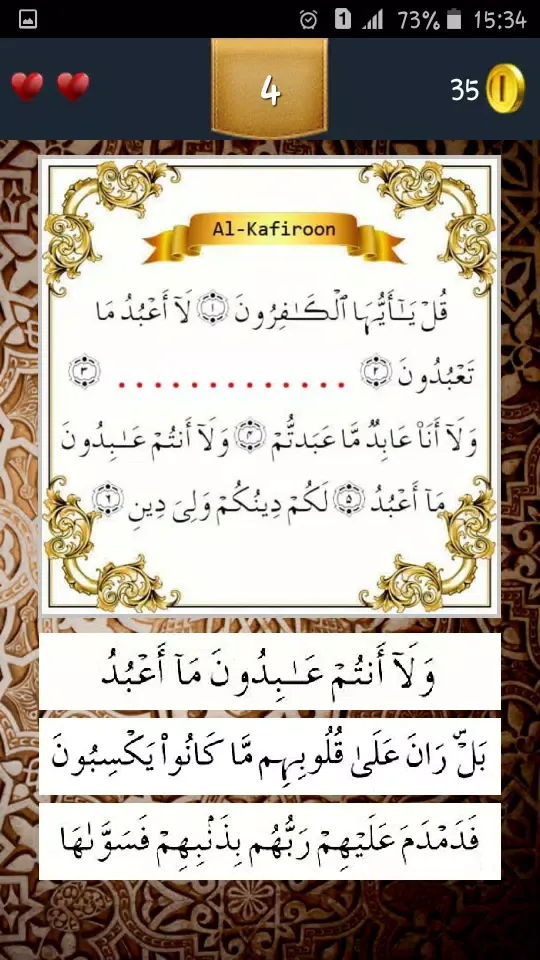 1 73% 15:34
4
35
Al-Kafiroon
قُلْ يَـٰٓأَيُّهَا ٱلْكَـٰفِرُونَ ١ لَآ أَعْبُدُ مَا
تَعْبُدُونَ ٢ ............. ٣
وَلَآ أَنَا۠ عَابِدٌ مَّا عَبَدتُّمْ ٤ وَلَآ أَنتُمْ عَـٰبِدُونَ
مَآ أَعْبُدُ ٥ لَكُمْ دِينُكُمْ وَلِىَ دِينِ ٦
وَلَآ أَنتُمْ عَـٰبِدُونَ مَآ أَعْبُدُ
بَلْ ۜ رَانَ عَلَىٰ قُلُوبِهِم مَّا كَانُوا۟ يَكْسِبُونَ
فَدَمْدَمَ عَلَيْهِمْ رَبُّهُم بِذَنۢبِهِمْ فَسَوَّىٰهَا